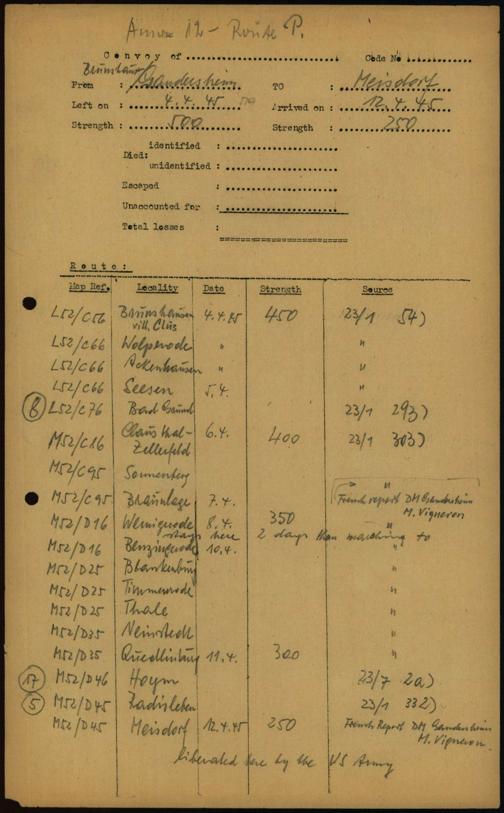 Annex 12 - Route P.
Convoy of ........ Code No ........
Brunshausen
From : Gandersheim TO : Meisdorf
Left on : 4.4.45 Arrived on : 12.4.45
Strength : 500 Strength : 250
identified : ........
Died:
unidentified : ........
Escaped : ........
Unaccounted for : ........
Total losses :
Route:
Map Ref. Locality Date Strength Source
L52/C56 Brunshausen 4.4.45 450 23/1 54)
vill. Clus
L52/C66 Wolperode " "
L52/C66 Ackenhausen " "
L52/C66 Seesen 5.4. "
8 L52/C76 Bad Grund 23/1 293)
M52/C16 Clausthal- 6.4. 400 23/1 303)
Zellerfeld
M52/C95 Sonnenberg "
M52/C95 Braunlage 7.4. French report DM Gandersheim
M. Vigneron
M52/D16 Wernigerode 8.4. 350 "
stays here 2 days than marching to
M52/D16 Benzingerode 10.4. "
M52/D25 Blankenburg "
M52/D25 Timmenrode "
M52/D25 Thale "
M52/D35 Neinstedt "
M52/D35 Quedlinburg 11.4. 300 "
17 M52/D46 Hoym 23/7 2a)
5 M52/D45 Radisleben 23/1 332)
M52/D45 Meisdorf 12.4.45 250 French Report DM Gandersheim
M. Vigneron.
liberated here by the US Army